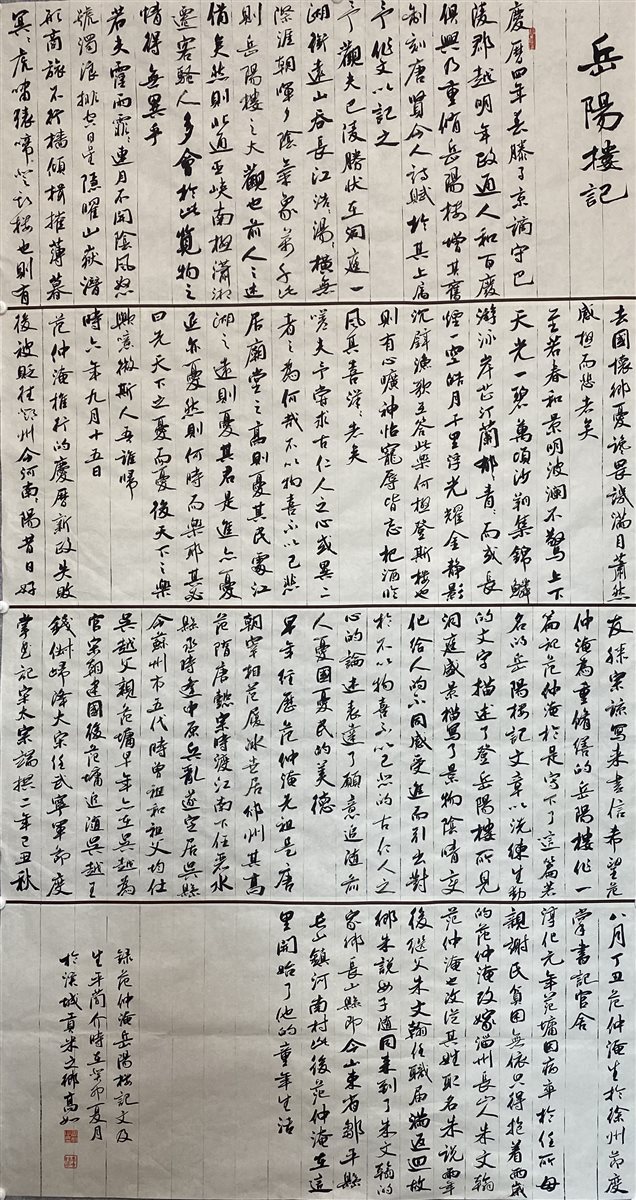 岳陽樓記
慶曆四年春滕子京謫守巴
陵郡越明年政通人和百廢
俱興乃重脩岳陽樓增其舊
制刻唐賢今人詩賦於其上屬
予作文以記之
予觀夫巴陵勝狀在洞庭一
湖銜遠山吞長江浩湯々橫無
際涯朝暉夕陰氣象萬千此
則岳陽樓之大觀也前人之述
備矣然則北通巫峽南極瀟湘
遷客騷人多會於此覽物之
情得無異乎
若夫霪雨霏々連月不開陰風怒
號濁浪排空日星隱曜山嶽潛
形商旅不行檣傾楫摧薄暮
冥々虎嘯猿啼登斯樓也則有
去國懷鄉憂讒畏譏滿目蕭然
感極而悲者矣
至若春和景明波瀾不驚上下
天光一碧萬頃沙鷗翔集錦鱗
游泳岸芷汀蘭郁々青々而或長
煙一空皓月千里浮光耀金靜影
沉璧漁歌互答此樂何極登斯樓也
則有心曠神怡寵辱皆忘把酒臨
風其喜洋々者矣
嗟夫予嘗求古仁人之心或異二
者之為何哉不以物喜不以己悲
居廟堂之高則憂其民處江
湖之遠則憂其君是進亦憂
退亦憂然則何時而樂耶其必
曰先天下之憂而憂後天下之樂
歟噫微斯人吾誰歸
時六年九月十五日
范仲淹推行的慶曆新政失敗
後被貶往鄧州今河南々陽昔日好
友滕宗諒寫來書信希望范
仲淹為重脩繕的岳陽樓作一
篇記范仲淹於是寫下了這篇
名的岳陽樓記文章以洗練生動
的文字描述了登岳陽樓所見
洞庭盛景描寫了景物陰晴變
化給人的不同感受進而引出對
於不以物喜不以己悲的古仁人之
心的論述表達了願意追隨前
人憂國憂民的美德
早年經歷范仲淹先祖是唐
朝宰相范履冰世居邠州其高
范隋唐懿宗時渡江南下任麗水
縣丞時逢中原兵亂遂定居吳縣
今蘇州市五代時曾祖和祖父均仕
吳越父親范墉早年亦在吳越為
官宋朝建國後范墉追隨吳越王
錢俶歸降大宋任武寧軍節度
掌書記宋太宗端拱二年己丑秋
八月丁丑范仲淹生於徐州節度
掌書記官舍
淳化元年范墉因病卒於任所母
親謝氏貧困無依只得抱着兩歲
的范仲淹改嫁淄州長山人朱文翰
范仲淹也改從其姓取名朱說兩年
後繼父朱文翰任職届滿返回故
鄉朱說母子隨同來到了朱文翰的
家鄉長山縣即今山東省鄒平縣
長山鎮河南村此後范仲淹在這
里開始了他的童年生活
錄范仲淹岳陽樓記文及
生平簡介時在癸卯夏月
於漢城貢米之鄉高